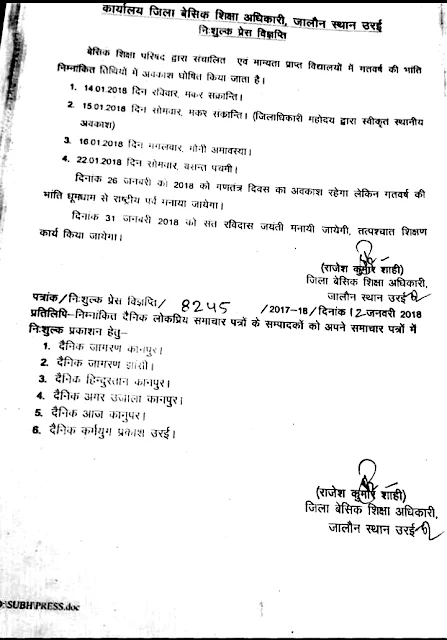 कार्यालय जिला बेसिक शिक्षा अधिकारी, जालौन स्थान उरई
निःशुल्क प्रेस विज्ञप्ति
बेसिक शिक्षा परिषद द्वारा संचालित एवं मान्यता प्राप्त विद्यालयों में गतवर्ष की भांति
निम्नांकित तिथियों में अवकाश घोषित किया जाता है।
1. 14.01.2018 दिन रविवार, मकर सक्रान्ति।
2. 15.01.2018 दिन सोमवार, मकर सक्रान्ति। (जिलाधिकारी महोदय द्वारा स्वीकृत स्थानीय
अवकाश)
3. 16.01.2018 दिन मगलवार, मौनी अमावस्या।
4. 22.01.2018 दिन सोमवार, बसन्त पचमी।
दिनांक 26 जनवरी को 2018 को गणतंत्र दिवस का अवकाश रहेगा लेकिन गतवर्ष की
भांति धूमधाम से राष्ट्रीय पर्व मनाया जायेगा।
दिनांक 31 जनवरी 2018 को सत रविदास जयंती मनायी जायेगी, तत्पश्चात शिक्षण
कार्य किया जायेगा।
(राजेश कुमार शाही)
जिला बेसिक शिक्षा अधिकारी,
जालौन स्थान उरई
पत्रांक/निःशुल्क प्रेस विज्ञप्ति/ 8245 /2017-18/दिनांक 12 जनवरी 2018
प्रतिलिपि-निम्नांकित दैनिक लोकप्रिय समाचार पत्रों के सम्पादकों को अपने समाचार पत्रों में
निःशुल्क प्रकाशन हेतु-
1. दैनिक जागरण कानपुर।
2. दैनिक जागरण झांसी।
3. दैनिक हिन्दुस्तान कानपुर।
4. दैनिक अमर उजाला कानपुर।
5. दैनिक आज कानुपर।
6. दैनिक कर्मयुग प्रकाश उरई।
(राजेश कुमार शाही)
जिला बेसिक शिक्षा अधिकारी,
जालौन स्थान उरई
D:\SUBH\PRESS.doc
1